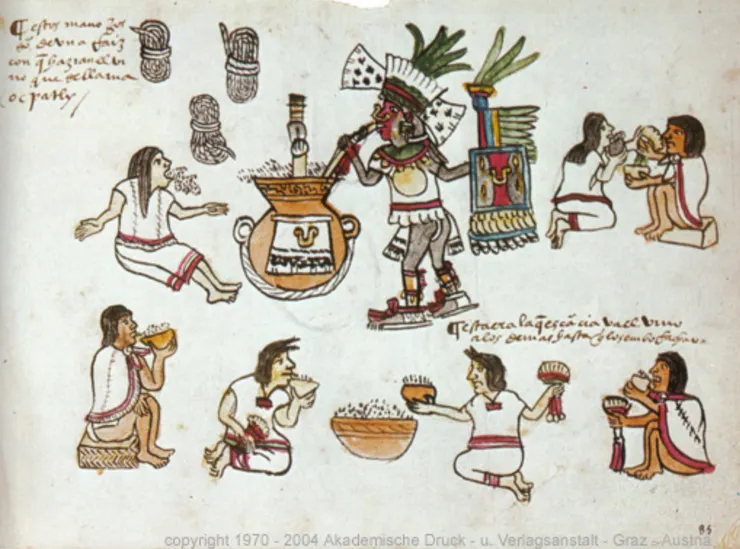 estos manoxos
de una Raiz
con q̄ hazian el vi
no que se llama
ocpatly
esta era la q̄ escācia va el vino
a los demas hasta q̄ los enboRachava
85
copyright 1970 - 2004 Akademische Druck - u. Verlagsanstalt - Graz - Austria